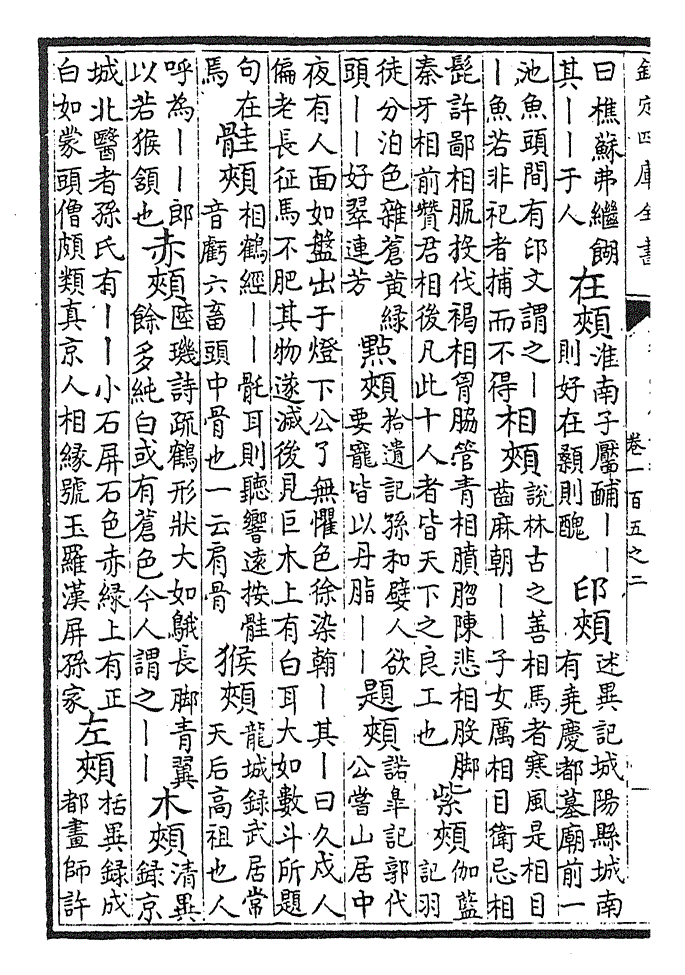 欽定四庫全書
卷一百五之二
曰樵蘇弗繼餬
其丨丨于人
在頰
淮南子靨䩉丨丨
則好在顙則醜
印頰
述異記城陽縣城南
有堯慶都墓廟前一
池魚頭間有印文謂之丨
丨魚若非祀者捕而不得
相頰
說林古之善相馬者寒風是相目
齒麻朝丨丨子女厲相目衛忌相
髭許鄙相脤投伐褐相胷脇管青相膹肳陳悲相股脚
秦牙相前贊君相後凡此十人者皆天下之良工也
紫頰
伽藍
記羽
徒分泊色雜蒼黃緑
頭丨丨好翠連芳
點頰
拾遺記孫和嬖人欲
要寵皆以丹脂丨丨
題頰
諾臯記郭代
公嘗山居中
夜有人面如盤出于燈下公了無懼色徐染翰丨其丨曰久戍人
偏老長征馬不肥其物遂滅後見巨木上有白耳大如數斗所題
句在
焉
䯓頰
相鶴經丨丨䯆耳則聽響遠按䯓
音虧六畜頭中骨也一云肩骨
猴頰
龍城録武居常
天后高祖也人
呼為丨丨郎
以若猴頷也
赤頰
陸璣詩疏鶴形狀大如鵝長脚青翼
餘多純白或有蒼色今人謂之丨丨
木頰
清異
録京
城北醫者孫氏有丨丨小石屏石色赤緣上有正
白如蒙頭僧頗類真京人相緣號玉羅漢屏孫家
左頰
括異録成
都畫師許